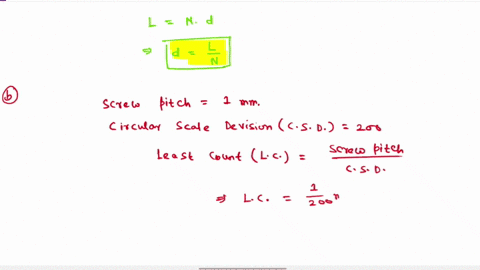 L = N. d
⇒ d = L/N
(b)
Screw pitch = 1 mm.
Circular Scale Devision (C.S.D.) = 200
Least Count (L.C.) = Screw pitch / C.S.D.
⇒ L.C. = 1/200